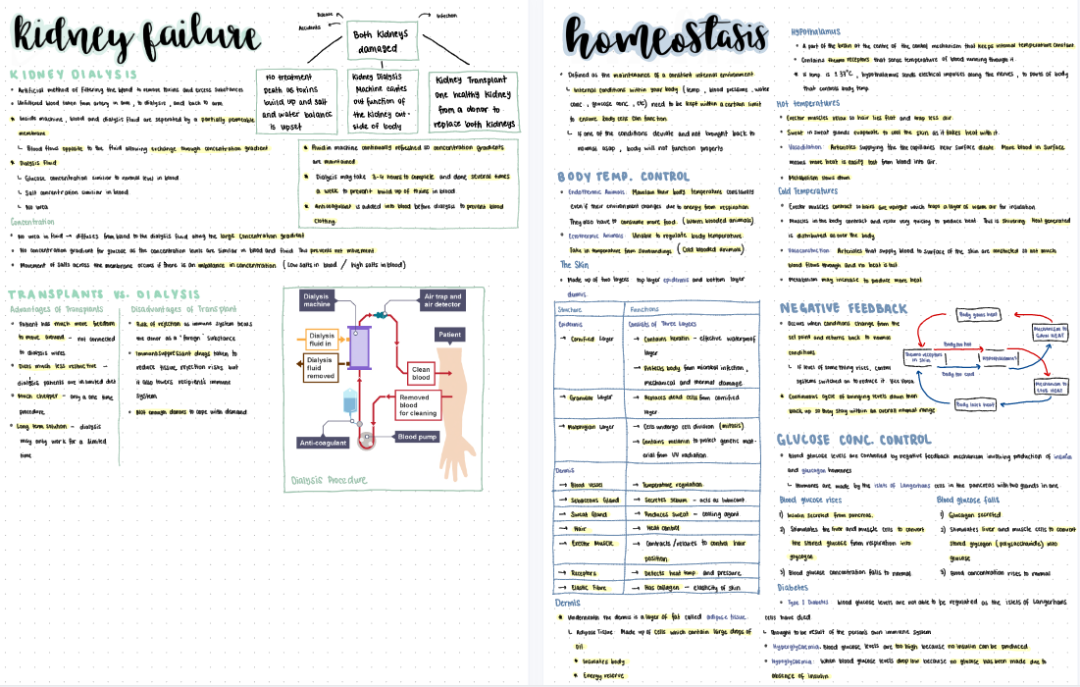 kidney failure
Disease
Accidents
Infection
Both Kidneys
damaged
No treatment
Death as toxins
build up and salt
and water balance
is upset
Kidney Dialysis
Machine carries
out function of
the Kidney out-
side of body
Kidney Transplant
one healthy kidney
from a donor to
replace both kidneys
KIDNEY DIALYSIS
Artificial method of filtering the blood to remove toxins and excess substances
Unfiltered blood taken from artery in arm, to dialysis, and back to arm
Inside machine, blood and dialysis fluid are separated by a partially permeable
membrane
Blood flows opposite to the fluid allowing exchange through concentration gradient
Dialysis fluid
Glucose concentration similar to normal level in blood
Salt concentration similar in blood
No urea
Fluid in machine continually refreshed so concentration gradients
are maintained
Dialysis may take 3-4 hours to complete and done several times
a week to prevent build up of toxins in blood
Anticoagulant is added into blood before dialysis to prevent blood
clotting
Concentration
No urea in fluid → diffuses from blood to the dialysis fluid along the large concentration gradient
No concentration gradient for glucose as the concentration levels are similar in blood and fluid. This prevents net movement
Movement of salts across the membrane occurs if there is an imbalance in concentration (Low salts in blood / high salts in blood)
TRANSPLANTS VS. DIALYSIS
Advantages of Transplants
Patient has much more freedom
to move around - not connected
to dialysis wires
Diets much less restrictive -
dialysis patients are in limited diet
Much cheaper - only a one time
procedure
Long term solution - dialysis
may only work for a limited
time
Disadvantages of Transplant
Risk of rejection as immune system treats
the donor as a "foreign" substance
Immunosuppressant drugs taken to
reduce tissue rejection risks but
it also lowers recipients immune
system
Not enough donors to cope with demand
Dialysis
machine
Air trap and
air detector
Patient
Dialysis
fluid in
Dialysis
fluid
removed
Clean
blood
Removed
blood
for cleaning
Anti-coagulent
Blood pump
Dialysis Procedure
homeostasis
Defined as the maintenance of a constant internal environment
Internal conditions within your body (temp, blood pressure, water
conc, glucose conc, etc) need to be kept within a certain limit
to ensure body cells can function
If one of the conditions deviate and not brought back to
normal asap, body will not function properly
BODY TEMP. CONTROL
Endothermic Animals: Maintain their body temperature constantly
even if their environment changes due to energy from respiration
They also have to consume more food (warm blooded animals)
Ectothermic Animals: Unable to regulate body temperature
Take in temperature from surroundings (Cold blooded animals)
The Skin
Made up of two layers top layer epidermis and bottom layer
dermis
Structure
Functions
Epidermis
Consists of Three layers
→ Cornified layer
→ Contains keratin - effective waterproof
layer
→ Protects body from microbial infection,
mechanical and thermal damage.
→ Granular Layer
→ Replaces dead cells from cornified
layer
→ Malpighian Layer
→ Cells undergo cell division (mitosis)
→ Contains melanin to protect genetic mat-
erial from UV radiation
Dermis
→ Blood vessels
→ Temperature regulation
→ Sebaceous Gland
→ Secretes sebum - acts as lubricant
→ Sweat Gland
→ Produces sweat - cooling agent
→ Hair
→ Heat control
→ Erector Muscle
→ Contracts/relaxes to control hair
position
→ Receptors
→ Detects heat, temp and pressure
→ Elastic Fibre
→ Has collagen - elasticity of skin
Dermis
Underneath the dermis a layer of fat called adipose tissue.
Adipose Tissue Made up of cells which contain large drops of
oil
Insulates body
Energy reserve
Hypothalamus
A part of the brain at the centre of the control mechanism that keeps internal temperature constant
Contains thermo receptors that sense temperature of blood running through it
If temp is ≠ 37°C, hypothalamus sends electrical impulses along the nerves, to parts of body
that controls body temp
Hot temperatures
Erector muscles relax so hair lies flat and trap less air.
Sweat in sweat glands evaporate to cool the skin as it takes heat with it.
Vasodilation: Arterioles supplying the the capillaries near surface dilate. More blood in surface
means more heat is easily lost from blood into air.
Metabolism slows down
Cold Temperatures
Erector muscles contract so hairs are upright which traps a layer of warm air for insulation
Muscles in the body contract and relax very quickly to produce heat. This is shivering. Heat generated
is distributed across the body
Vasoconstriction: Arterioles that supply blood to surface of the skin are constricted so not much
blood flows through and no heat is lost
Metabolism may increase to produce more heat
NEGATIVE FEEDBACK
Occurs when conditions change from the
set point and returns back to normal
conditions.
If level of something rises, control
systems switched on to reduce it. Vice versa
Continuous cycle of bringing levels down then
back up so they stay within an overall normal range
Body gains heat
Mechanism to
Gain heat
Body too hot
Thermo receptors
in skin
Hypothalamus
Body too cold
Mechanism to
lose heat
Body loses heat
GLUCOSE CONC. CONTROL
Blood glucose levels are controlled by negative feedback mechanism involving production of insulin
and glucagon hormones
Hormones are made by the islets of Langerhans cells in the pancreas with two glands in one
Blood glucose rises
1) Insulin secreted from pancreas.
2) Stimulates the liver and muscle cells to convert
the stored glucose from respiration into
glycogen
3) Blood glucose concentration falls to normal
Blood glucose falls
1) Glucagon secreted
2) Stimulates liver and muscle cells to convert
stored glycogen (polysaccharide) into
glucose
3) Blood concentration rises to normal
Diabetes
Type 1 Diabetes blood glucose levels are not able to be regulated as the islets of Langerhans
cells have died
Thought to be result of the person's own immune system
Hyperglycaemia. Blood glucose levels are too high because no insulin can be produced
Hypoglycaemia: When blood glucose levels drop low because no glucose has been made due to
absence of insulin